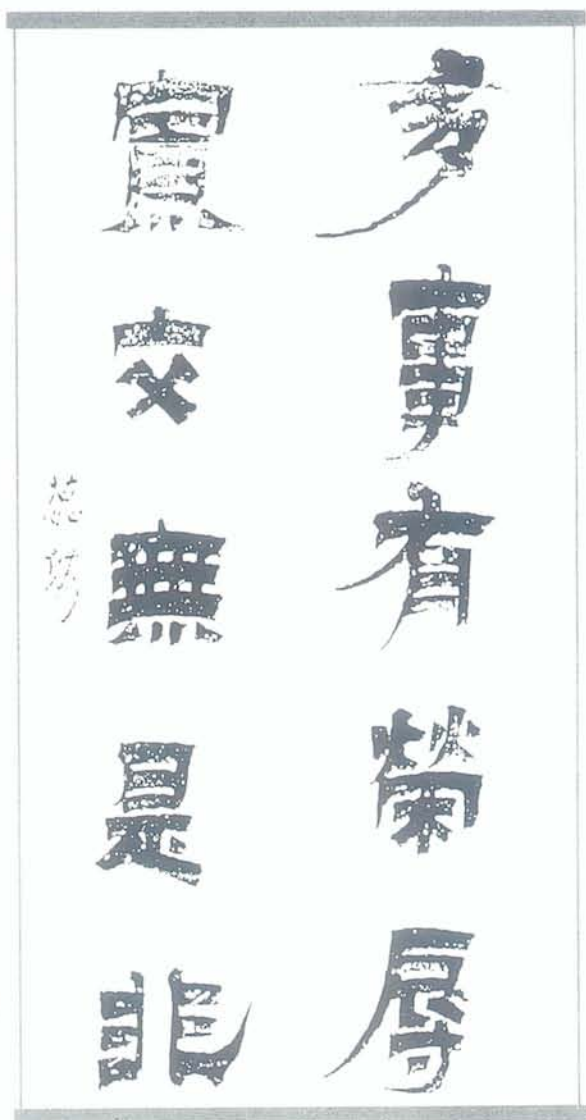 多事有榮辱
寡交無是非